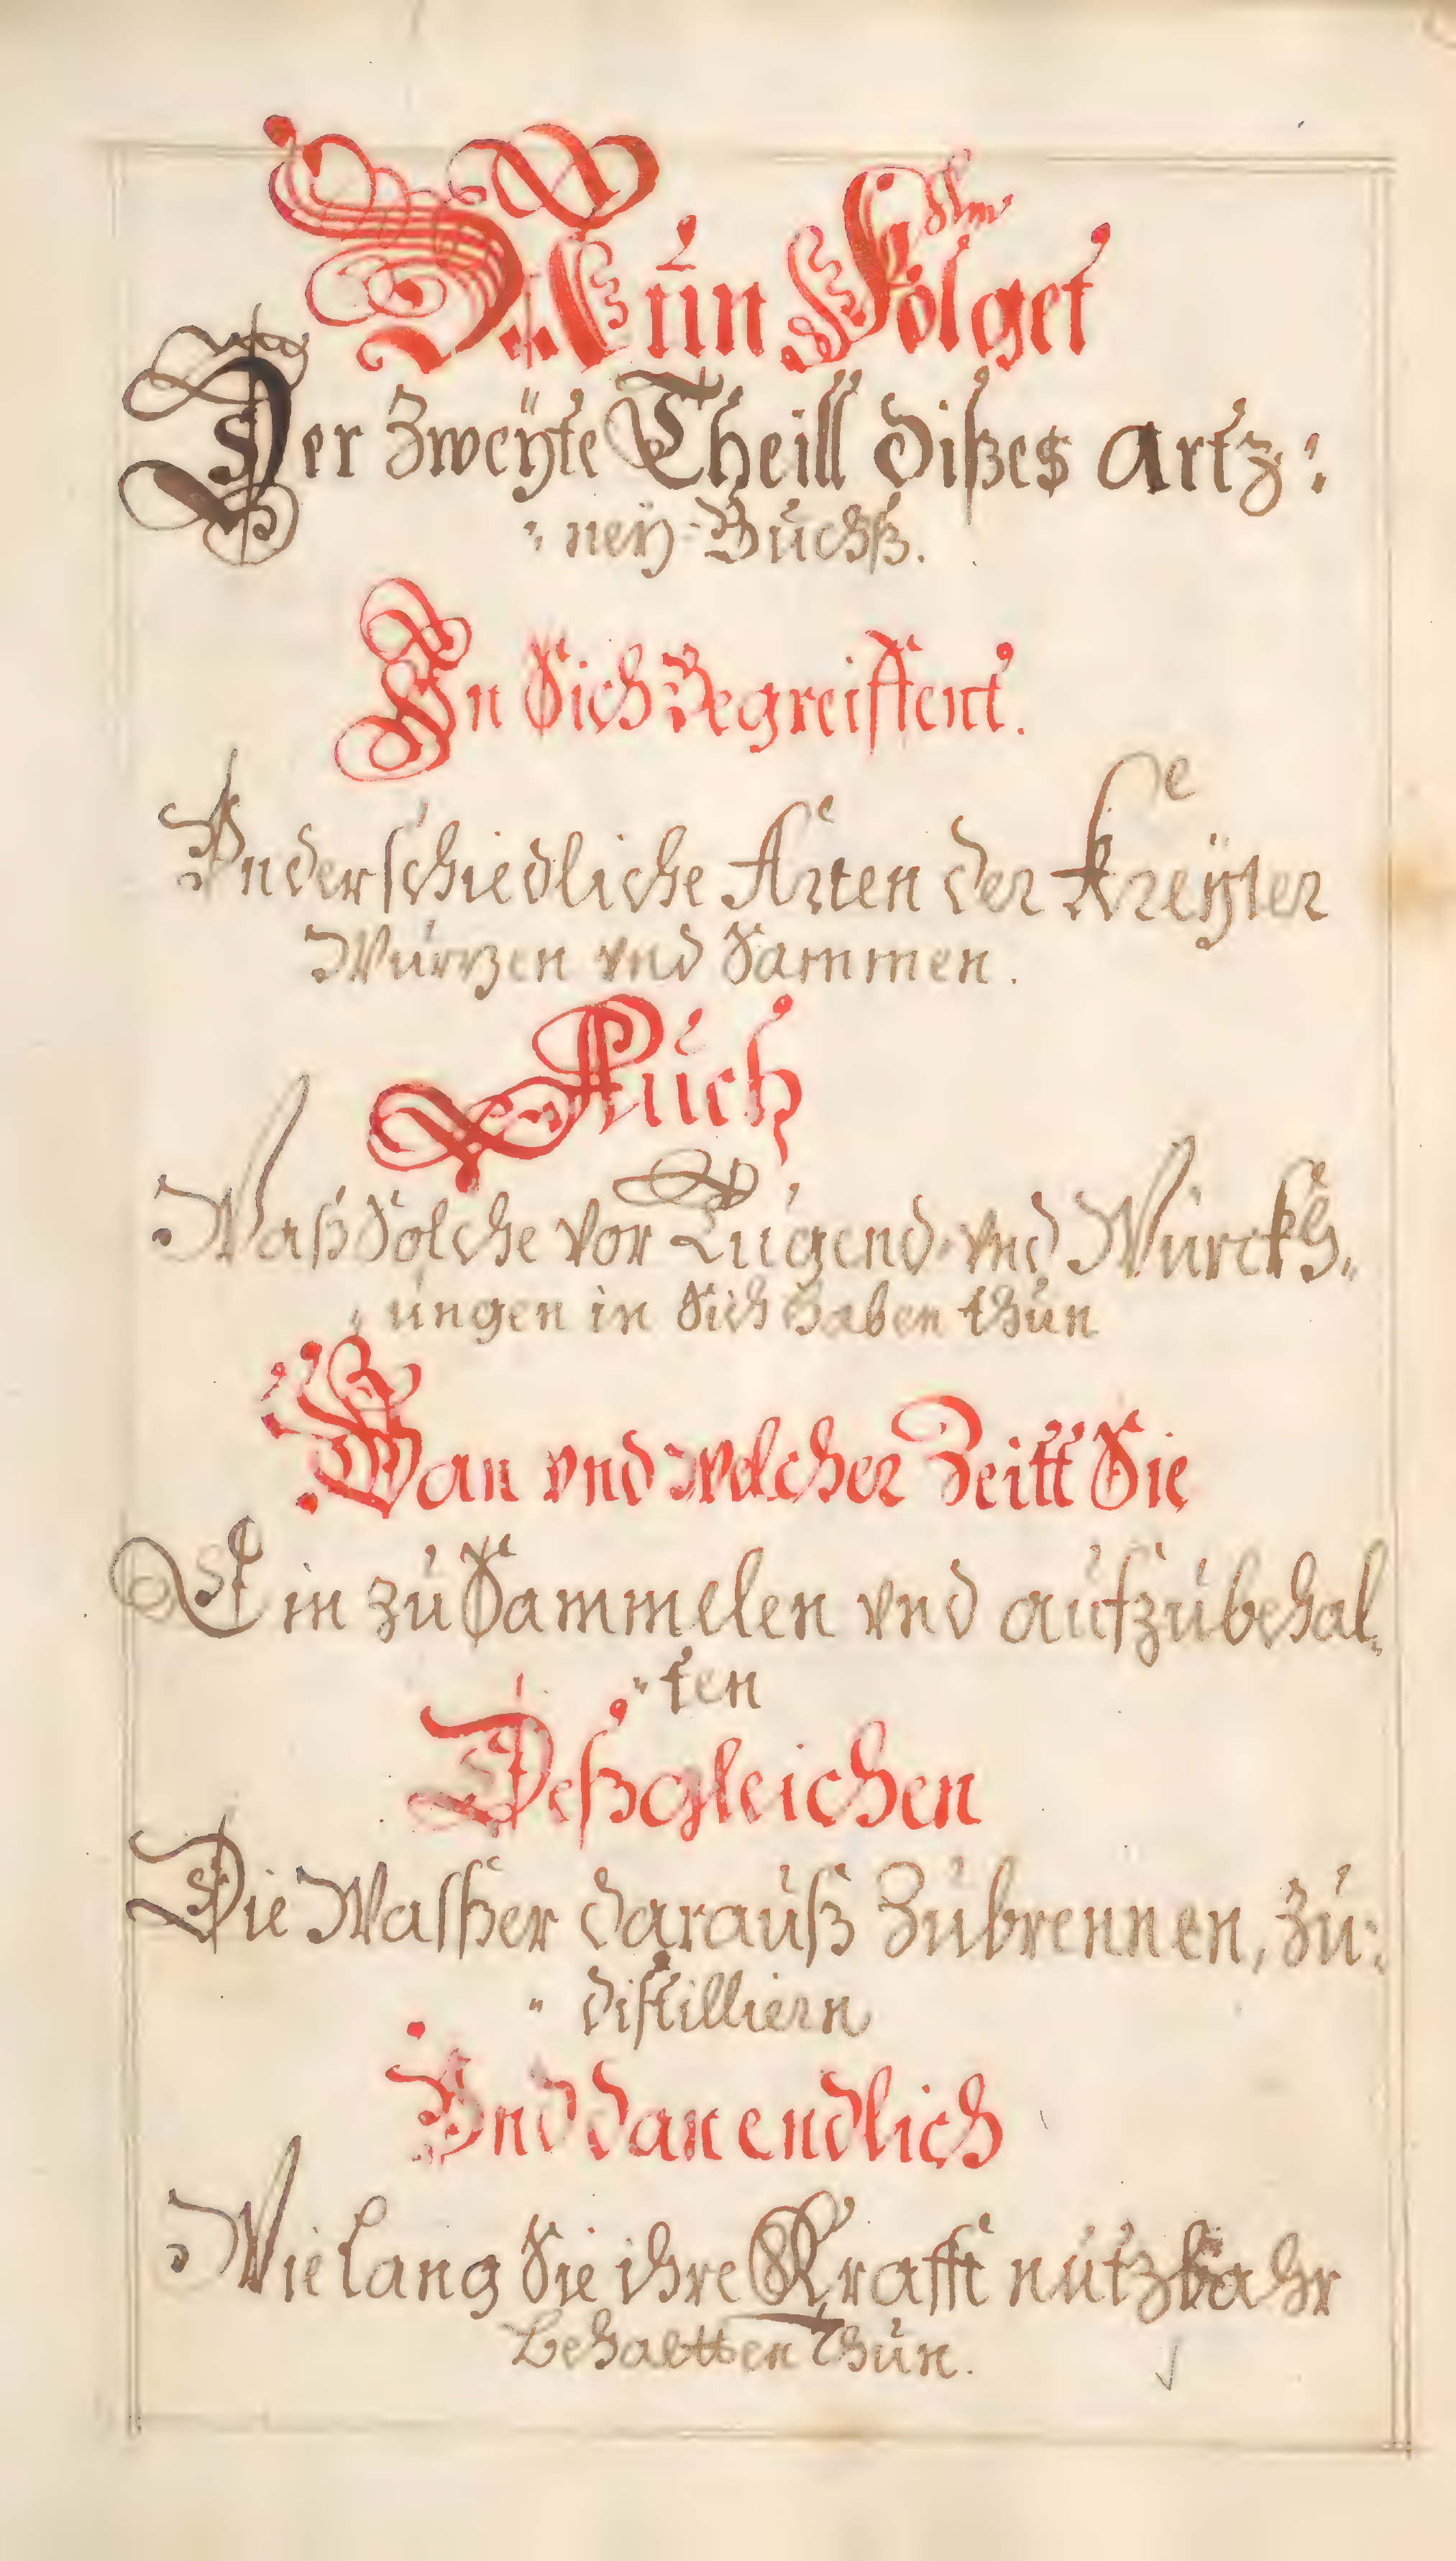 Nún Folget
Der Zweÿte Theill dißes artz:
: neÿ-Búchß.
In Sich Begreiffent.
Vnderschiedliche Arten der Kreÿter
Wúrtzen vnd Sammen.
Aúch
Waß Solche vor Túgend vnd Würckh„
„ úngen in Sich haben thún
Wan vnd welcher Zeitt Sie
Ein zú Sammelen vnd aúfzúbehal„
„ ten
Deßgleichen
Die Wasßer daraúß Zúbrennen, zú:
„ distilliern
Vnd dan endlich
Wie lang Sie ihre Krafft nútzbahr
behaltten thún.